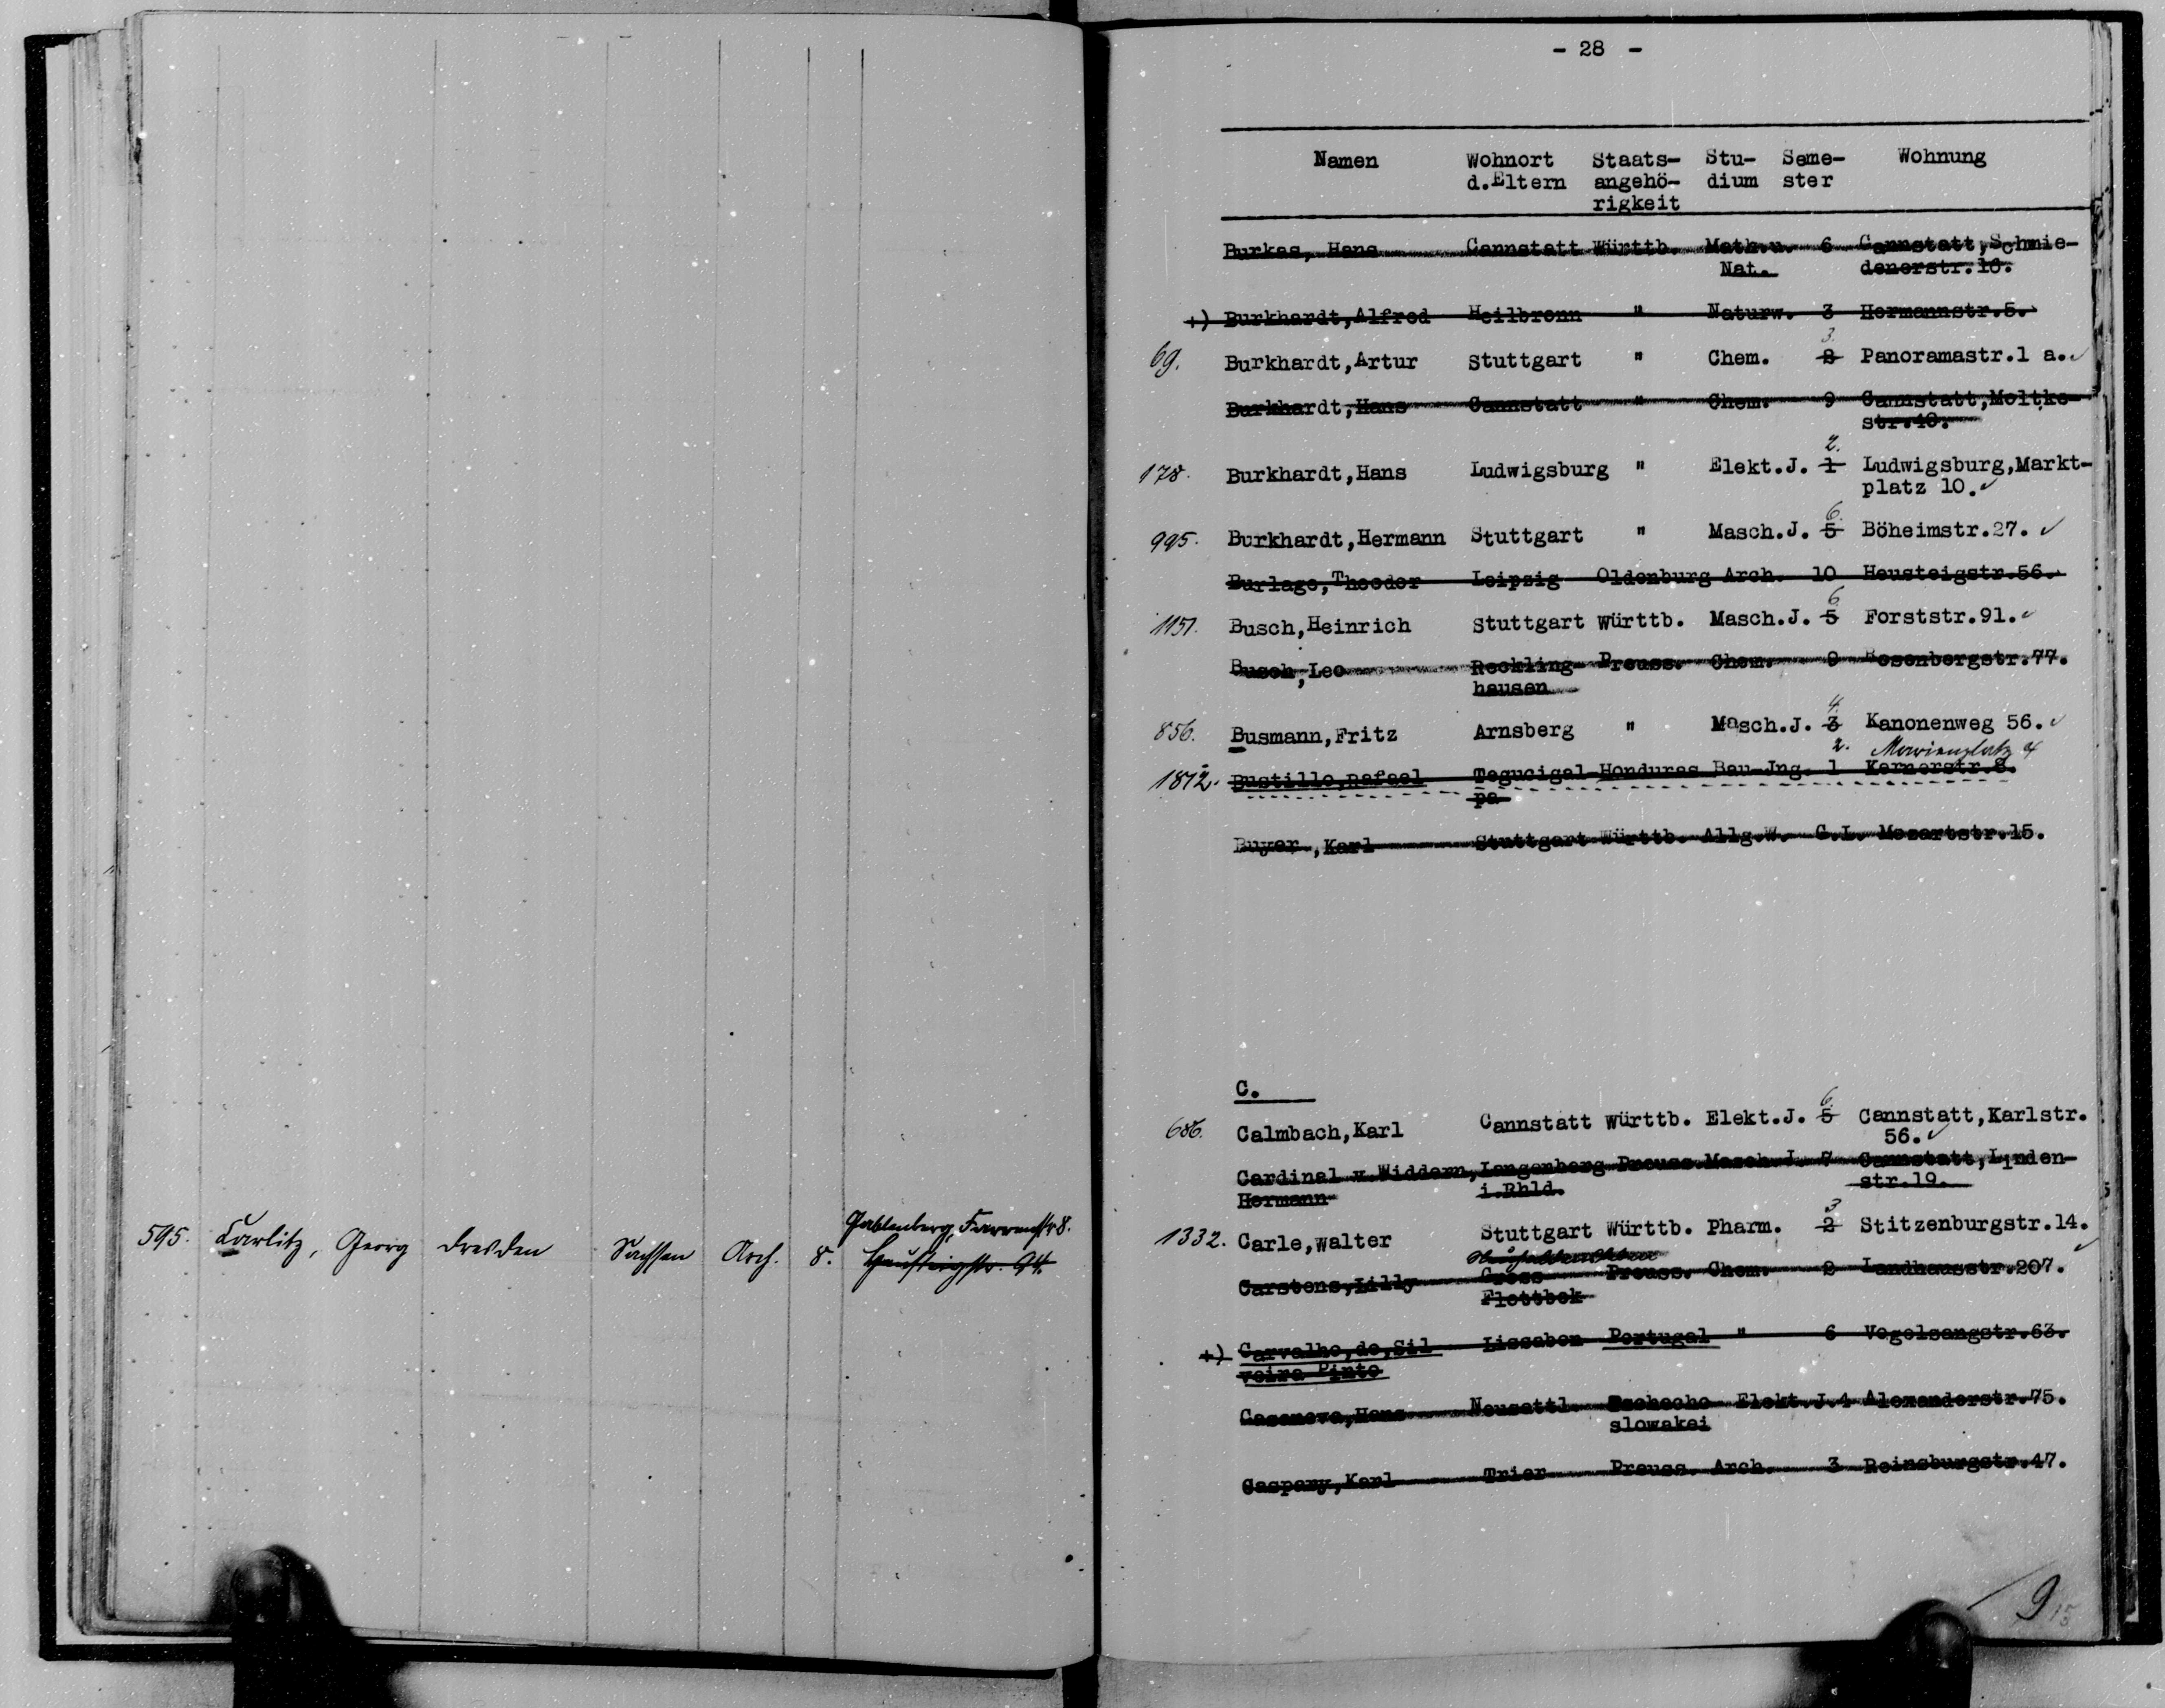 595. Carlitz, Georg Dresden Sachsen Arch. 8. Gablenberg, Farrenstr. 8.
Heusteigstr. 94.
- 28 -
Namen Wohnort Staats- Stu- Seme- Wohnung
d.Eltern angehö- dium ster
rigkeit
Burkas, Hans Cannstatt Württb. Math.u. 6 Cannstatt,Schmie-
Nat. denerstr.16.
+) Burkhardt,Alfred Heilbronn " Naturw. 3 Hermannstr.5.
3.
69. Burkhardt,Artur Stuttgart " Chem. 2 Panoramastr.1 a.
Burkhardt,Hans Cannstatt " Chem. 9 Cannstatt,Moltke-
str.40.
2.
178. Burkhardt,Hans Ludwigsburg " Elekt.J. 1 Ludwigsburg,Markt-
platz 10.
6.
995. Burkhardt,Hermann Stuttgart " Masch.J. 5 Böheimstr.27.
Burlage,Theodor Leipzig Oldenburg Arch. 10 Heusteigstr.56.
6.
1151. Busch,Heinrich Stuttgart Württb. Masch.J. 5 Forststr.91.
Busch,Leo Reckling- Preuss. Chem. 9 Rosenbergstr.77.
hausen
4.
856. Busmann,Fritz Arnsberg " Masch.J. 3 Kanonenweg 56.
2. Marienplatz 4
1872. Bustillo,Rafael Tegucigal- Honduras Bau-Jng. 1 Kernerstr.8.
pa
Buyer,Karl Stuttgart Württb. Allg.W. G.L. Mozartstr.15.
C.
6.
686. Calmbach,Karl Cannstatt Württb. Elekt.J. 5 Cannstatt,Karlstr.
56.
Cardinal v.Widdern, Langenberg Preuss.Masch.J. 7 Cannstatt,Linden-
Hermann i.Rhld. str.19.
3
1332. Carle,Walter Stuttgart Württb. Pharm. 2 Stitzenburgstr.14.
Carstens,Lilly Gross Preuss. Chem. 2 Landhausstr.207.
Flottbek
+) Carvalho,de,Sil Lissabon Portugal " 6 Vogelsangstr.63.
veira Pinto
Casanova,Hans Neusattl Tschecho Elekt.J.4 Alexanderstr.75.
slowakei
Caspary,Karl Trier Preuss. Arch. 3 Reinsburgstr.47.
9
15